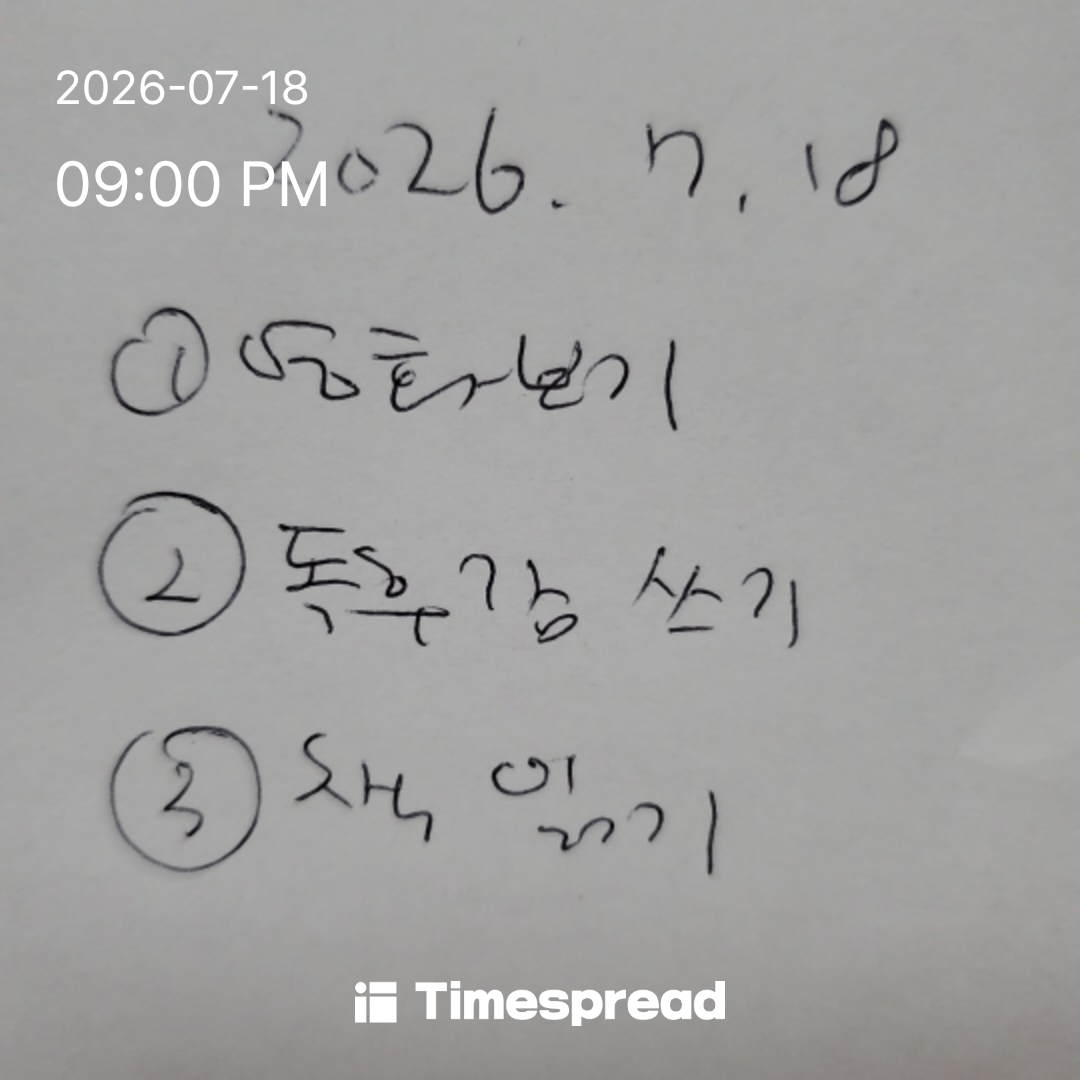 2026-07-18
2026. 7. 18
09:00 PM
① 영화보기
② 독후감 쓰기
③ 책 읽기
Timespread